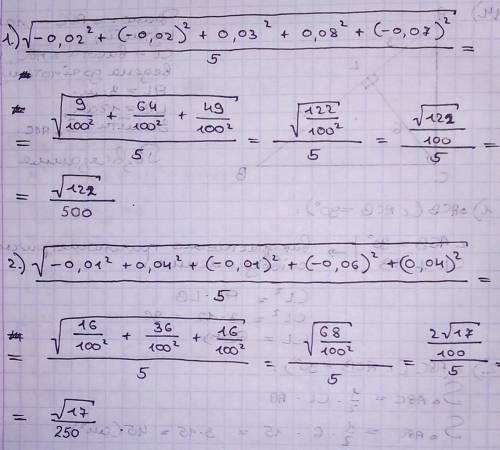 1.) √(-0,02² + (-0,02)² + 0,03² + 0,08² + (-0,07)²) / 5 =
= √(9/100² + 64/100² + 49/100²) / 5 = √(122/100²) / 5 = (√122/100) / 5 =
= √122 / 500
2.) √(-0,01² + 0,04² + (-0,01)² + (-0,06)² + (0,04)²) / 5 =
= √(16/100² + 36/100² + 16/100²) / 5 = √(68/100²) / 5 = (2√17/100) / 5 =
= √17 / 250 .